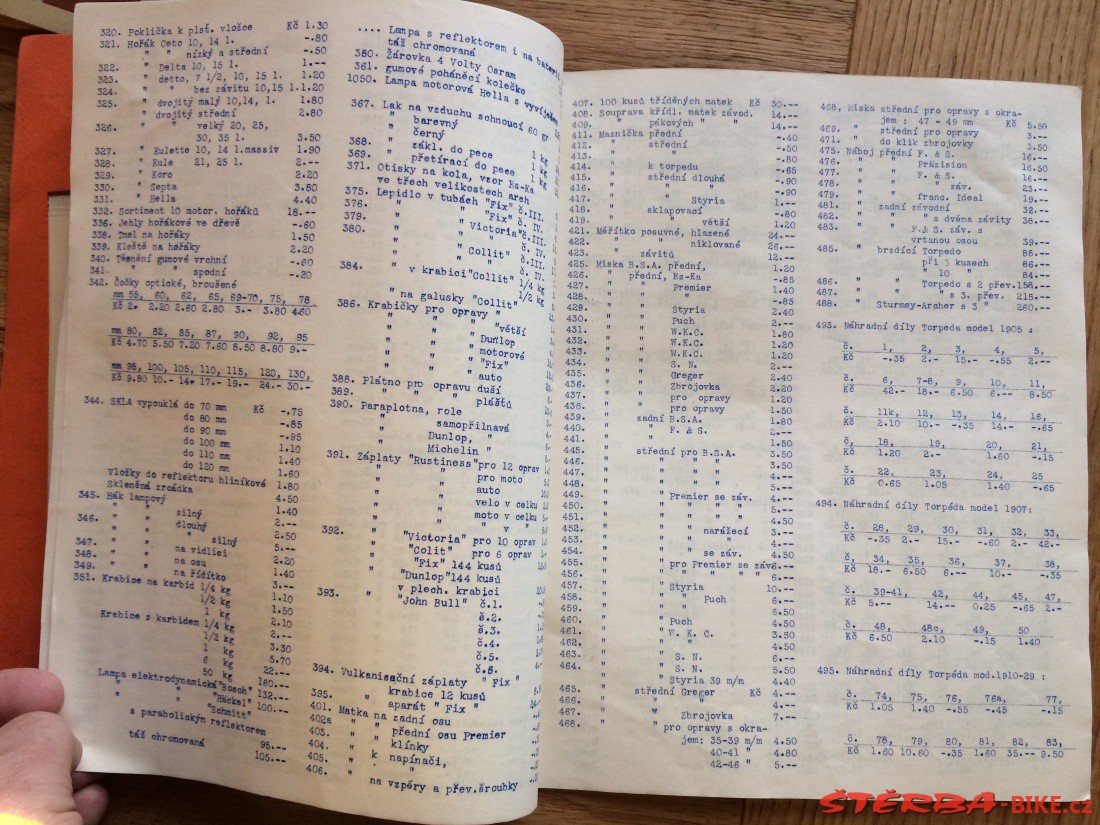 320. Poklička k plsť. vložce Kč 1.30
321. Hořák Ceto 10, 14 l. -.80
" " nízký a střední -.50
322. " Delta 10, 15 l. 1.--
323. " detto, 7 1/2, 10, 15 l. 1.20
324. " " bez závitu 10,15 l.1.20
325. " dvojitý malý 10,14, l. 1.80
" dvojitý střední 2.80
326. " " velký 20, 25,
30, 35 l. 3.50
327. " Eulette 10, 14 l.massiv 1.90
328. " Eule 21, 25 l. 2.--
329. " Koro 2.20
330. " Septa 3.80
331. " Hella 4.40
332. Sortiment 10 motor. hořáků 18.--
336. Jehly hořákové ve dřevě -.60
338. Tmel na hořáky 1.50
339. Kleště na hořáky 2.20
340. Těsnění gumové vrchní -.60
341. " " spodní -.20
342. Čočky optické, broušené
mm 55, 60, 62, 65, 69-70, 75, 78
Kč 2.- 2.20 2.60 2.80 3.- 3.80 4.60
mm 80, 82, 85, 87, 90, 92, 95
Kč 4.70 5.50 7.20 7.60 8.50 8.80 9.-
mm 98, 100, 105, 110, 115, 120, 130,
Kč 9.80 10.- 14.- 17.- 19.- 24.- 30.--
344. SKLA vypouklá do 70 mm Kč -.75
do 80 mm -.85
do 90 mm -.95
do 100 mm 1.10
do 110 mm 1.40
do 120 mm 1.60
Vložky do reflektoru hliníkové 1.80
Skleněná zrcádka 4.50
345. Hák lampový 1.40
" " silný 2.--
346. " dlouhý 2.50
" " silný 5.--
347. " na vidlici 2.20
348. " na osu 1.40
349. " na řídítko 3.--
351. Krabice na karbid 1/4 kg 1.10
1/2 kg 1.50
1 kg 2.10
Krabice s karbidem 1/4 kg 2.--
1/2 kg 3.30
1 kg 5.70
6 kg 22.--
50 kg 160.--
Lampa elektrodynamická "Bosch" 132.--
" "Häckel" 100.--
" "Schmitt"
s parabolickým reflektorem 95.--
táž chromovaná 105.--
.... Lampa s reflektorem i na baterii
táž chromovaná
380. Žárovka 4 Volty Osram
361. gumové poháněcí kolečko
1050. Lampa motorová Hella s vyvíječem
367. Lak na vzduchu schnoucí 60 gr
" barevný
" černý
368. " zákl. do pece 1 kg
369. " přetírací do pece 1 kg
371. Otisky na kola, vzor Es-Ka 1 kg
ve třech velikostech arch
375. Lepidlo v tubách "Fix" č.III.
376. " " "Fix" č. IV.
379. " " "Victoria"č.III.
380. " " " č. IV.
" " "Collit" č.III.
" " " č. IV.
384. " v krabici"Collit" 1/4 kg
" " " 1/2 kg
" na galusky "Collit"
386. Krabičky pro opravy "
" " " "větší
" " " Dunlop
" " " motorové
" " " "Fix"
" " " auto
388. Plátno pro opravu duší
389. " " " plášťů
390. Paraplotna, role
" samopřilnavá
" Dunlop, "
" Michelin "
391. Záplaty "Rustiness"pro 12 oprav
" " pro moto
" " auto
" " velo v celku
" " moto v celku
" " " v "
392. " "Victoria" pro 10 oprav
" "Colit" pro 6 oprav
" "Fix" 144 kusů
" "Dunlop"144 kusů
v plech. krabici
393. " "John Bull" č.1.
" " č.2.
" " č.3.
" " č.4.
" " č.5.
" " č.6.
394. Vulkanisační záplaty "Fix "
" krabice 12 kusů
395. " aparát " Fix "
401. Matka na zadní osu
402a " přední osu Premier
403. " " klínky
404. " k napínači,
405. " " "
406. " na vzpěry a přev.šroubky
407. 100 kusů tříděných matek Kč 30.--
408. Souprava křídl. matek závod. 14.--
409. " pákových " " 14.--
411. Maznička přední -.40
412. " střední -.80
413. " " -.50
414. " k torpedu -.65
415. " střední dlouhá -.90
416. " " " -.90
417. " " Styria 1.--
418. " sklapovací -.80
419. " " větší 1.20
421. Měřítko posuvné, hlazené 24.--
422. " " niklované 26.--
423. " závitů 12.--
425. Miska B.S.A. přední, 1.20
426. " přední, Es-Ka -.85
427. " " Premier 1.40
428. " " " 1.40
429. " " Styria 2.40
430. " " Puch 2.--
431. " " W.K.C. 1.80
432. " " W.K.C. 1.20
433. " " W.K.C. 1.20
434. " " S. N. 2.--
435. " " Greger 2.40
436. " " Zbrojovka 2.20
437. " " pro opravy 1.20
438. " " pro opravy 1.50
439. " zadní B.S.A. 1.80
440. " " F. & S. 2.--
441. " " " 1.50
445. " střední pro B.S.A. 3.50
446. " " " " 3.50
447. " " " " 4.--
448. " " " " 5.--
449. " " Premier se záv. 4.--
450. " " " " " 4.--
451. " " " " " 5.--
452. " " " " 4.50
453. " " " narážecí 3.--
454. " " " " 4.--
455. " " " se záv. 4.50
456. " " pro Premier se záv.6.--
457. " " " " " " 6.--
456. " " Styria 10.--
457. " " " Puch 6.--
458. " " " " 6.50
459. " " Puch 4.50
460. " " " 6.50
461. " " W. K. C. 3.50
462. " " " 4.50
463. " " S. N. 6.--
464. " " S. N. 5.50
" " Styria 39 m/m 4.40
465. " střední Greger Kč 4.--
466. " " " 4.--
467. " " Zbrojovka 7.--
468. " " pro opravy s okra-
jem: 35-39 m/m 4.50
40-41 " 4.80
42-46 " 5.--
468. Miska střední pro opravy s okra-
jem : 47 - 49 mm Kč 5.50
469. " střední pro opravy 3.--
471. " do klik zbrojovky 3.50
475. Náboj přední F. & S. 16.--
476. " " Präzision 14.50
477. " " F. & S. 16.50
478. " " " záv. 23.--
479. " " franc. Ideal 19.--
481. " zadní závodní 32.--
482. " " " s dvěma závity 38.--
483. " " F.& S. záv. s
vrtanou osou 39.--
485. " brzdící Torpedo 88.--
" při 5 kusech 86.--
" " 10 " 84.--
486. " Torpedo s 2 přev.158.--
487. " " s 3. přev. 215.--
488. " Sturmey-Archer s 3 " 260.--
493. Náhradní díly Torpeda model 1905 :
č. 1, 2, 3, 4, 5,
Kč -.35 2.- 15.- -.55 2.--
č. 6, 7-8, 9, 10, 11,
Kč 42.- 18.- 6.50 6.-- 8.50
č. 11k, 12, 13, 14, 16,
Kč 2.10 10.- -.35 14.- -.65
č, 18, 19, 20, 21,
Kč 1.20 2.- 1.60 -.15
č. 22, 23, 24, 25
Kč 0.65 1.05 1.40 -.65
494. Náhradní díly Torpéda model 1907:
č. 28, 29, 30, 31, 32, 33,
Kč -.35 2.- 15.- -.60 2.- 42.-
č. 34, 35, 36, 37, 38,
Kč 18.- 6.50 6.-- 10.- -.35
č. 39-41, 42, 44, 45, 47,
Kč 5.-- 14.-- 0.25 -.65 2.-
č. 48, 48c, 49, 50
Kč 6.50 2.10 -.15 1.40
495. Náhradní díly Torpéda mod.1910-29 :
č. 74, 75, 76, 76a, 77,
Kč 1.05 1.40 -.55 -.45 -.15
č. 78, 79, 80, 81, 82, 83,
Kč 1.60 10.60 -.35 1.60 35.-- 9.50
ŠTĚRBA-BIKE.cz